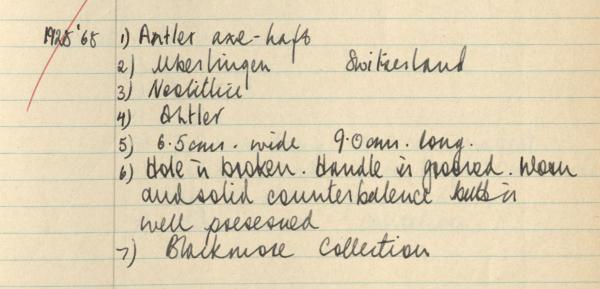 1925'65 1) Antler axe-haft
2) Uberlingen Switzerland
3) Neolithic
4) Antler
5) 6.5cms. wide 9.0cms. long.
6) Hole is broken. Handle is grooved. Worn
and solid counterbalence butt is
well preserved
7) Blackmore Collection